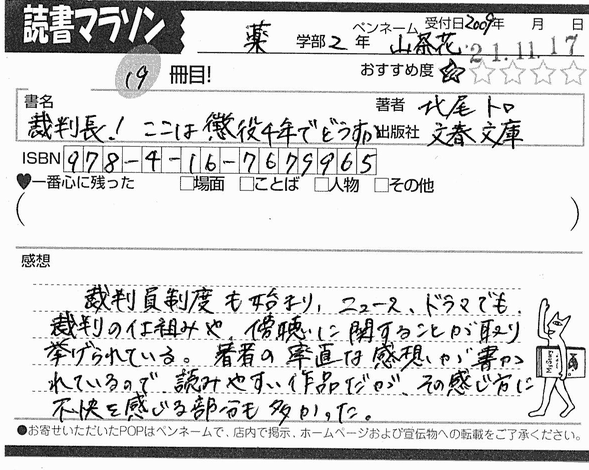 読書マラソン
薬 学部 2 年 ペンネーム 山茶花 受付日 2009年 月 日
21.11.17
19 冊目!
おすすめ度 ★☆☆☆☆
書名 裁判長!ここは懲役4年でどうすか
著者 北尾トロ
出版社 文春文庫
ISBN 978-4-16-7679965
♥一番心に残った □場面 □ことば □人物 □その他
( )
感想
裁判員制度も始まり、ニュース、ドラマでも、
裁判の仕組みや、傍聴に関することが取り
挙げられている。著者の率直な感想が書か
れているので、読みやすい作品だが、その感じ方に
不快を感じる部分も多かった。
●お寄せいただいたPOPはペンネームで、店内で掲示、ホームページおよび宣伝物への転載をご了承ください。